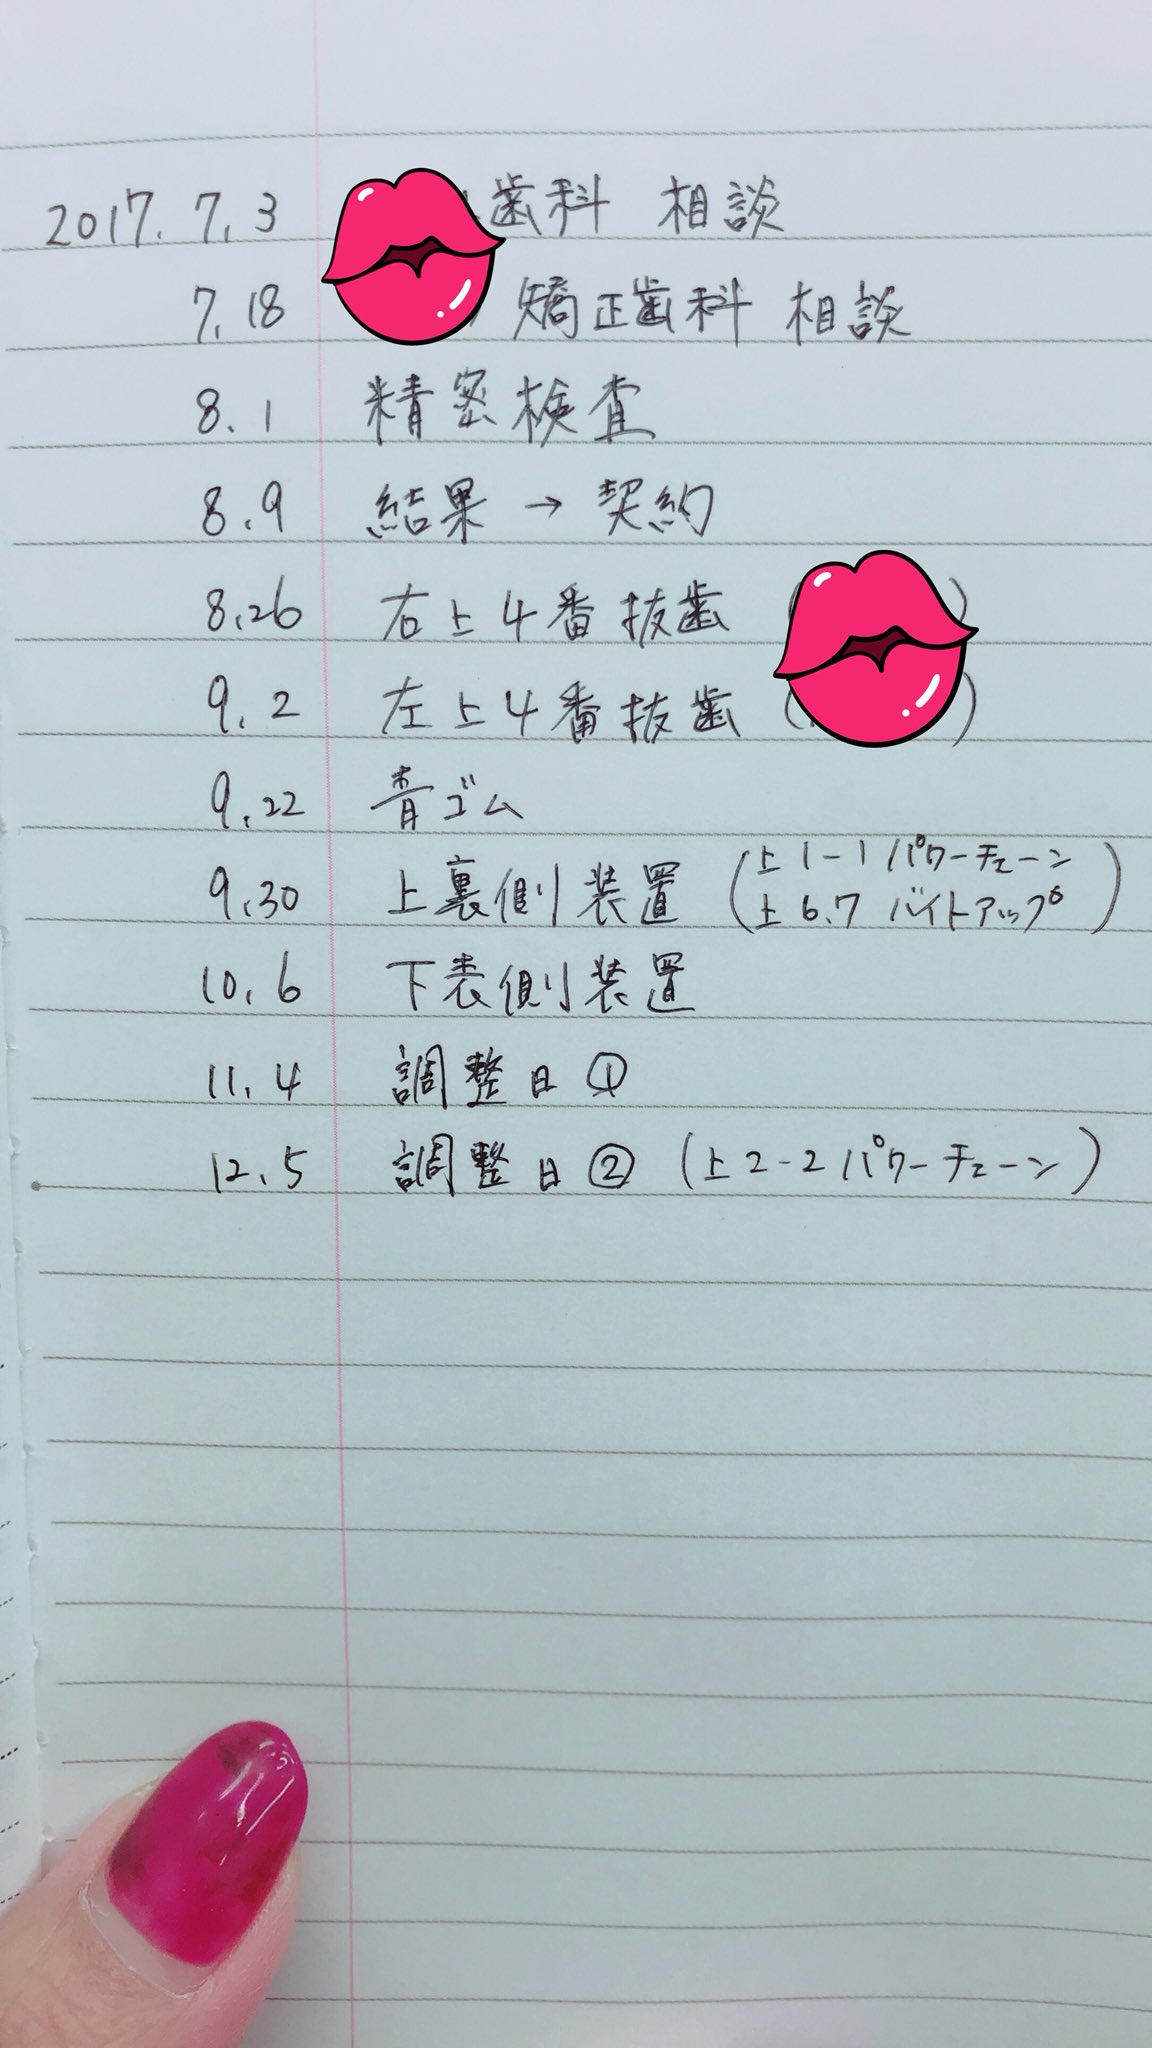 2017. 7. 3 歯科 相談
7. 18 矯正歯科 相談
8. 1 精密検査
8. 9 結果→契約
8. 26 右上4番抜歯 ( )
9. 2 左上4番抜歯 ( )
9. 22 青ゴム
9. 30 上裏側装置 (上1-1パワーチェーン
上6.7 バイトアップ)
10. 6 下表側装置
11. 4 調整日①
12. 5 調整日② (上2-2パワーチェーン)